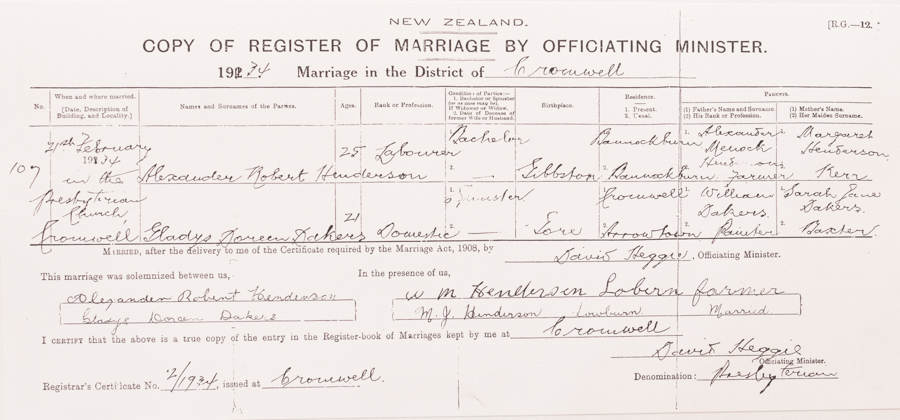 NEW ZEALAND.
[R.G.—12.
COPY OF REGISTER OF MARRIAGE BY OFFICIATING MINISTER.
1934 Marriage in the District of Cromwell
No. When and where married. [Date, Description of Building, and Locality.] Names and Surnames of the Parties. Ages. Rank or Profession. Condition of Parties:— 1. Bachelor or Spinster (or as case may be). If Widower or Widow, 2. Date of Decease of former Wife or Husband. Birthplace. Residence. 1. Present. 2. Usual. PARENTS. (1) Father's Name and Surname. (2) His Rank or Profession. (1) Mother's Name. (2) Her Maiden Surname.
February 1934 in the Presbyterian Church Cromwell
Alexander Robert Henderson 25 Labourer 1. Bachelor 2. — Gibbston 1. Bannockburn 2. Bannockburn 1. Alexander Henderson 2. Farmer 1. Margaret Henderson 2. Kerr
Gladys Doreen Dakers 21 Domestic 1. Spinster 2. — Gore 1. Cromwell 2. Arrowtown 1. William Dakers 2. Painter 1. Sarah Jane Dakers 2. Baxter
MARRIED, after the delivery to me of the Certificate required by the Marriage Act, 1908, by David Heggie, Officiating Minister.
This marriage was solemnized between us, In the presence of us,
Alexander Robert Henderson W M Henderson Lobern farmer
Gladys Doreen Dakers M. J. Henderson Lowburn Married
I CERTIFY that the above is a true copy of the entry in the Register-book of Marriages kept by me at Cromwell
David Heggie
Officiating Minister.
Registrar's Certificate No. 2/1934, issued at Cromwell.
Denomination: Presbyterian